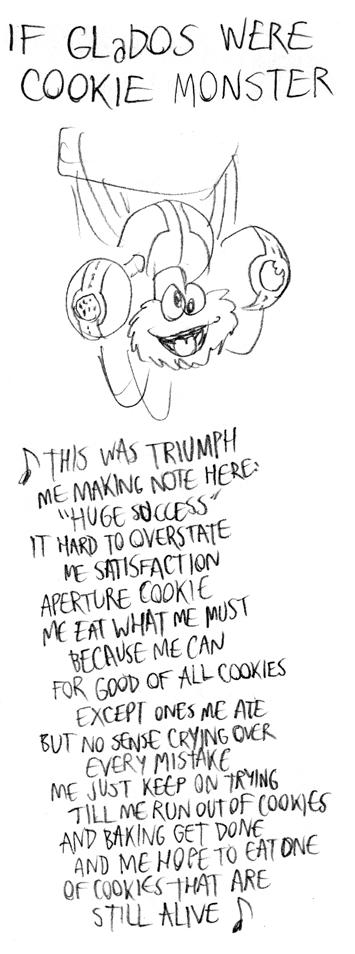 IF GLaDOS WERE
COOKIE MONSTER
♪ THIS WAS TRIUMPH
ME MAKING NOTE HERE:
"HUGE SUCCESS"
IT HARD TO OVERSTATE
ME SATISFACTION
APERTURE COOKIE
ME EAT WHAT ME MUST
BECAUSE ME CAN
FOR GOOD OF ALL COOKIES
EXCEPT ONES ME ATE
BUT NO SENSE CRYING OVER
EVERY MISTAKE
ME JUST KEEP ON TRYING
TILL ME RUN OUT OF COOKIES
AND BAKING GET DONE
AND ME HOPE TO EAT ONE
OF COOKIES THAT ARE
STILL ALIVE ♪